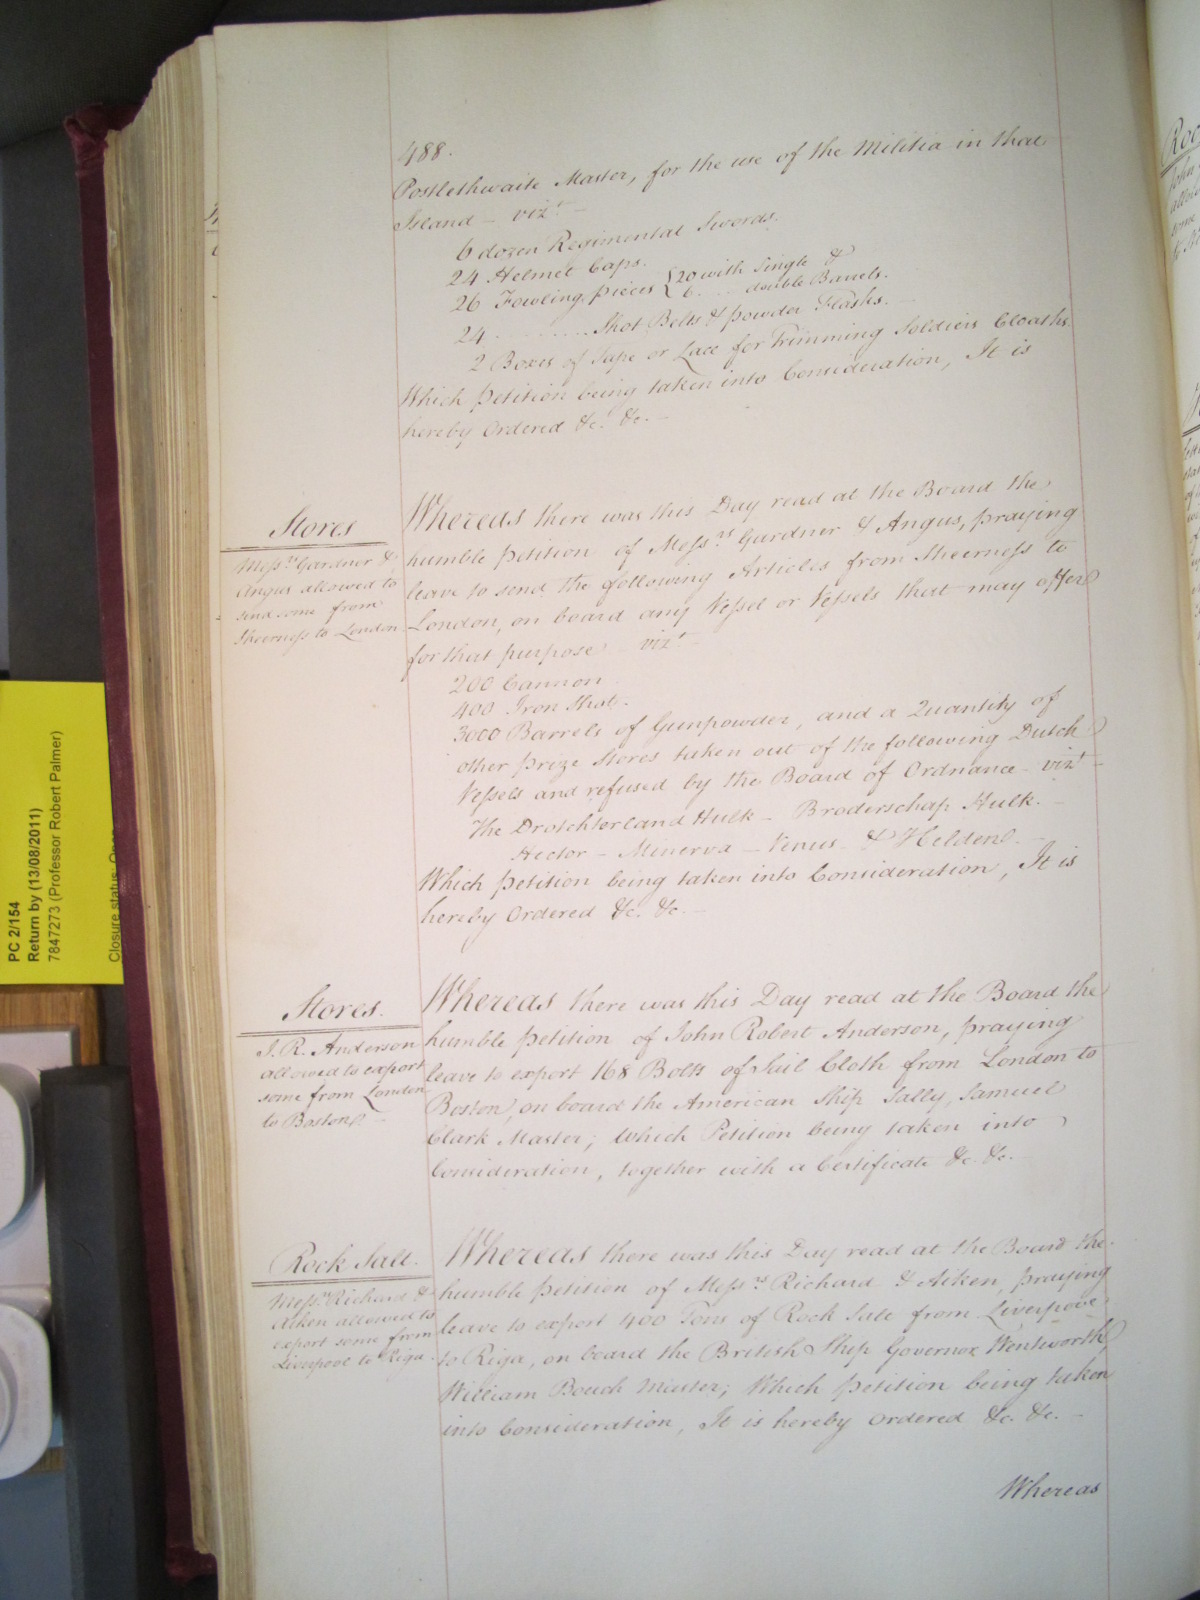 488.
Postlethwaite Master, for the use of the Militia in that
Island – vizt –
6 dozen Regimental Swords.
24 Helmet Caps.
26 Fowling pieces { 20 with Single &
6 ..... double Barrels.
24 ......... Shot Belts & powder Flasks. –
2 Boxes of Tape or Lace for Trimming Soldiers Cloaths.
Which petition being taken into Consideration, It is
hereby Ordered &c. &c. –
Stores
Messrs Gardner &
Angus allowed to
send some from
Sheerness to London
Whereas there was this Day read at the Board the
humble petition of Messrs Gardner & Angus, praying
leave to send the following Articles from Sheerness to
London, on board any Vessel or Vessels that may offer
for that purpose vizt –
200 Cannon
400 Iron Shot.
3000 Barrels of Gunpowder, and a Quantity of
other prize Stores taken out of the following Dutch
Vessels and refused by the Board of Ordnance vizt –
The Drotchterland Hulk – Broderschap Hulk. –
Hector – Minerva – Venus & Helden. –
Which petition being taken into Consideration, It is
hereby Ordered &c. &c. –
Stores.
J. R. Anderson
allowed to export
some from London
to Boston –
Whereas there was this Day read at the Board the
humble petition of John Robert Anderson, praying
leave to export 168 Bolts of Sail Cloth from London to
Boston, on board the American Ship Sally, Samuel
Clark Master; Which Petition being taken into
Consideration, together with a Certificate &c. &c. –
Rock Salt.
Messrs Richard &
Aiken allowed to
export some from
Liverpool to Riga
Whereas there was this Day read at the Board the
humble petition of Messrs Richard & Aiken, praying
leave to export 400 Tons of Rock Salt from Liverpool
to Riga, on board the British Ship Governor Wentworth,
William Bouch Master; Which petition being taken
into Consideration, It is hereby Ordered &c. &c. –
Whereas
PC 2/154
Return by (13/08/2011)
7847273 (Professor Robert Palmer)
Closure status: Open